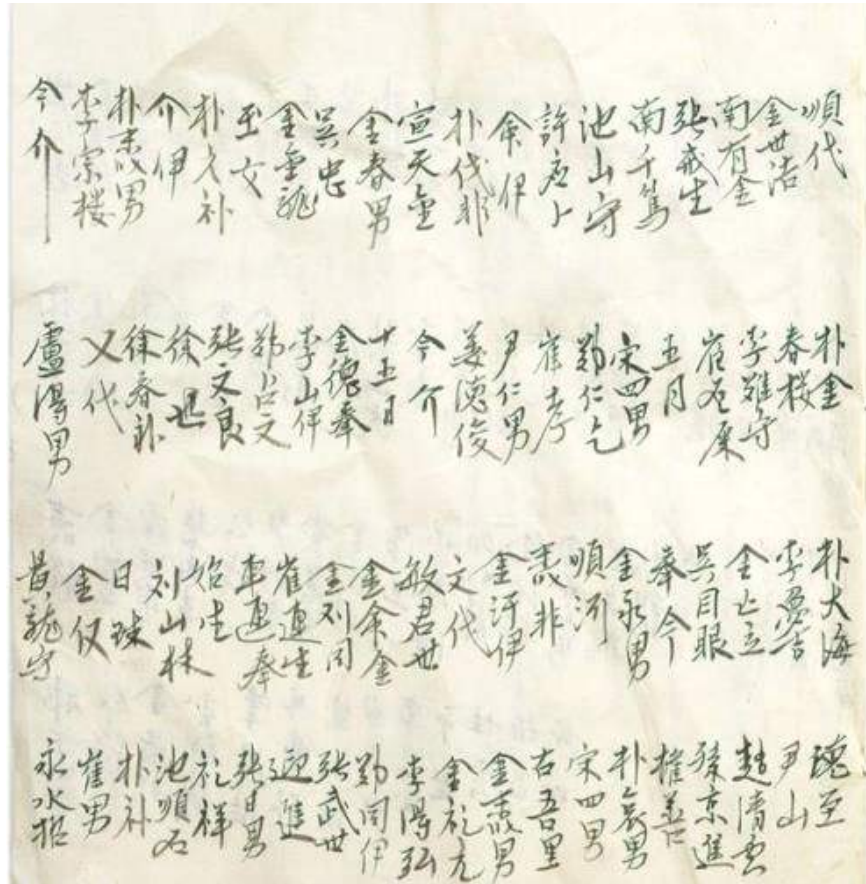 順代
金世浩
南有金
張戒生
南千篤
池山守
許应上
余伊
朴代非
宣天金
金春男
吳忠
金金龍
玉女
朴夕补
介伊
朴季男
李宗楼
今介
朴金
春楼
李雄守
崔石屎
五月
宋四男
鄭仁乞
崔孝
尹仁男
姜德俊
今介
十五日
金德奉
李山伊
郑占文
張文良
徐
徐春补
义代
盧得男
朴大海
李愛吉
金亡立
吳目眼
奉今
金永男
順河
義非
金汗伊
文代
敏君世
金余金
金列同
崔連生
車運奉
始生
刘山林
日珠
金仅
黃龍守
魂至
尹山
趙清云
孫京進
權善
朴哀男
宋四男
右吾里
金義男
金礼元
李得弘
鄭同伊
張武世
迎進
張日男
礼祥
池順石
朴补
崔男
永水招